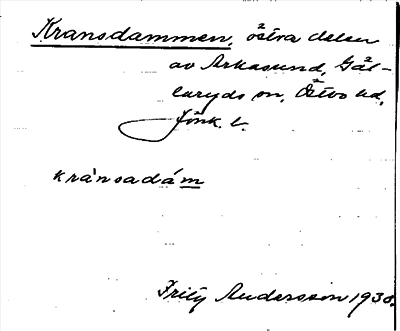 Kransdammen, östra delen
av Arkasund, Gål-
laryds sn, Östbo hd,
Jönk. l.
kra`nsadá m
Fritz Andersson 1930.